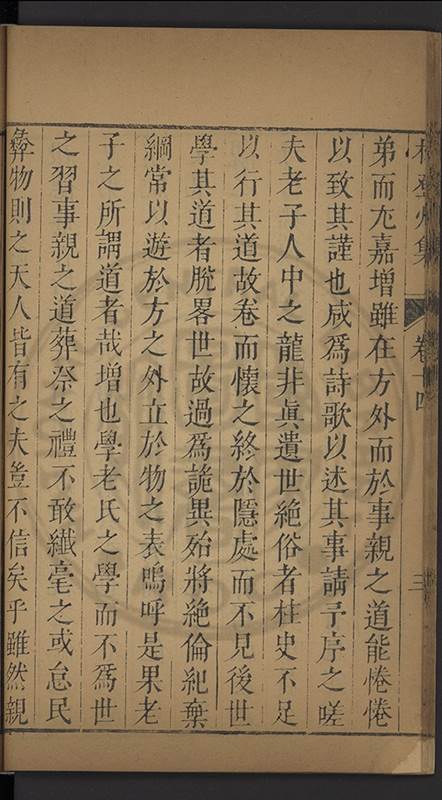 林登州集 卷十四 三
弟而尤嘉增雖在方外而於事親之道能惓惓
以致其謹也咸爲詩歌以述其事請予序之嗟
夫老子人中之龍非眞遺世絶俗者柱史不足
以行其道故卷而懷之終於隱處而不見後世
學其道者脫畧世故過爲詭異殆將絶倫紀棄
綱常以遊於方之外立於物之表嗚呼是果老
子之所謂道者哉增也學老氏之學而不爲世
之習事親之道葬祭之禮不敢纎毫之或怠民
彝物則之天人皆有之夫豈不信矣乎雖然親